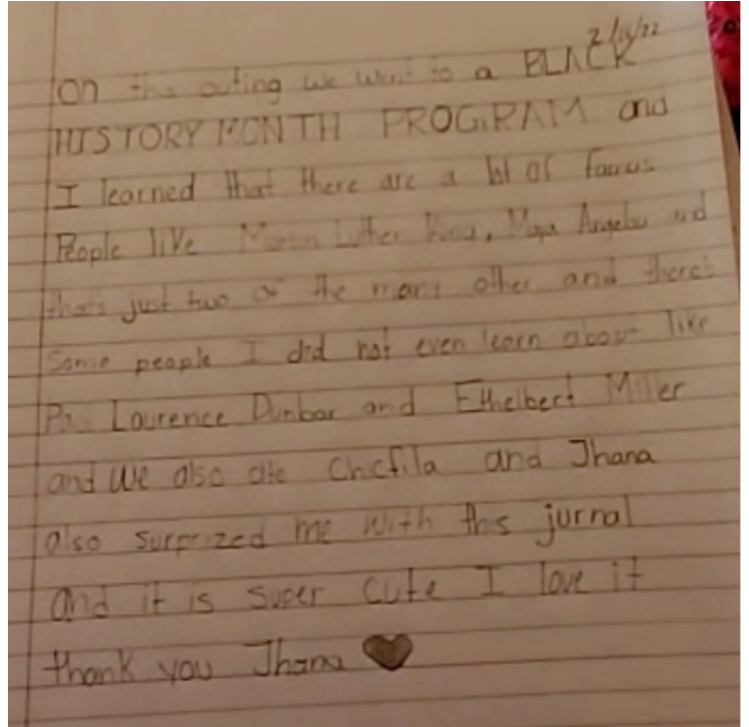 2/14/22
On the outing we went to a BLACK
HISTORY MONTH PROGRAM and
I learned that there are a lot of famus
People like Martin Luther King, Maya Angelou and
that's just two of the many other and there's
Some people I did not even learn about like
Paul Laurence Dunbar and Ethelbert Miller
and we also ate Chicfila and Jhana
also surprized me with this jurnal
and it is super cute I love it
thank you Jhana